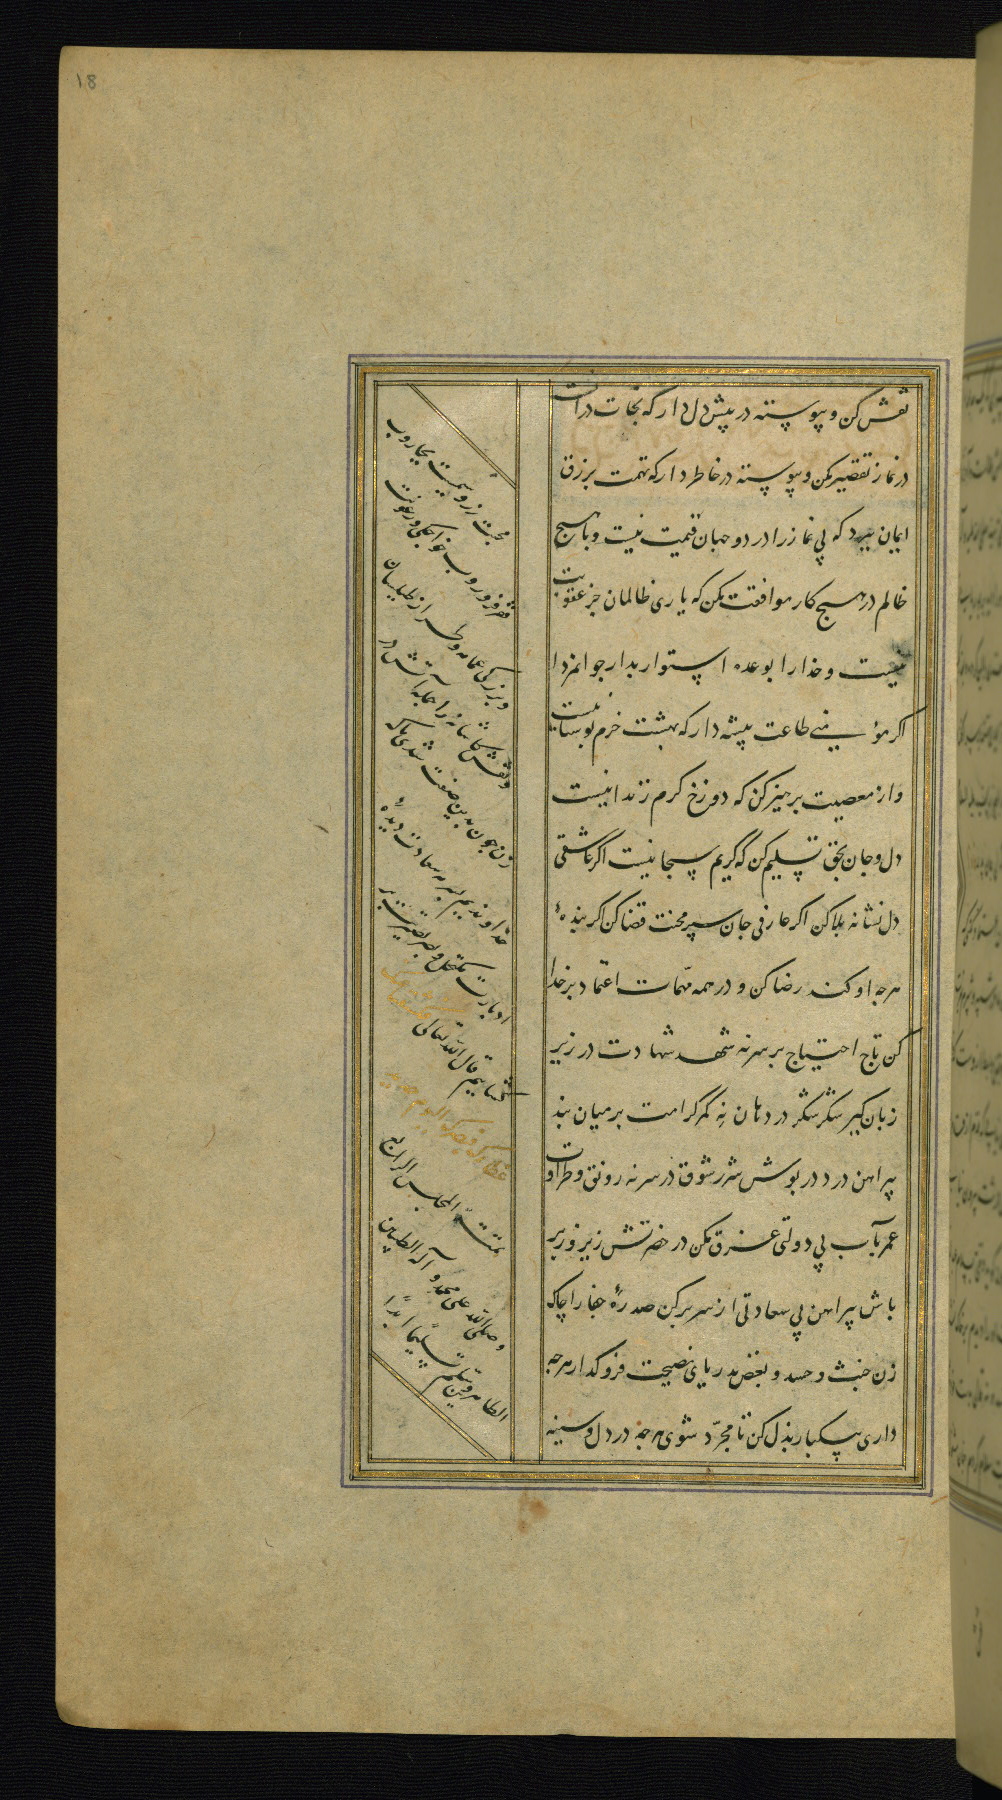 18
نقش کن و پیوسته در پیش دل دار که نجات در انست
در نماز تقصیر مکن و پیوسته در خاطر دار که تهمت برزق
ایمان ببرد که بی نماز را در دو جهان قیمت نیست و با هیچ
ظالم در هیچ کار موافقت مکن که یاری ظالمان جز عقوبت
نیست و خدارا بوعده استوار بدار جوانمردا
اکر مؤمنی طاعت پیشه دار که بهشت خرم بوستانیست
و از معصیت پرهیز کن که دوزخ کرم زندانیست
دل و جان بحق تسلیم کن که کریم سبحانیست اکر عاشقی
دل نشانه بلا کن اکر عارفی جان سپر محنت قضا کن اکر بندهٔ
هرجه او کند رضا کن و در همه مهمات اعتماد بر خدا
کن تاج احتیاج بر سر نه شهد شهادت در زیر
زبان کیر شکر شکر در دهان نه کمر کرامت بر میان بند
پیراهن درد در پوش شرر شوق در سر نه رونق و طراوت
عمر بآب بی دولتی غرق مکن در حضرتش زیر و زبر
باش پیراهن بی سعادتی از سر بر کن صدرهٔ جفا را چاک
زن خبث و حسد و بغض بدریای نصیحت فرو کذار هرجه
داری بیکبار بذل کن تا مجرد شوی هرجه در دل و سینه
محبت زر و سیمست بجاروب
فقر فرو روب خواجکی و رعونت
و بزرکی عمامه و طرار طیلسان
و نقش کاشانه را جمله آتش در
زن چون بدین صفت شدی ملکه
خداوندیم بسرمه سعادت دیدهٔ
ارادت مکتحل و بصر بصیرتت بر
کشاییم قال الله تعالی
غطاءک فبصرک الیوم حدید
تمت المجلس الرابع
و صلی الله علی محمد و آله الطیبین
الطاهرین و سلم تسلیما ابدا